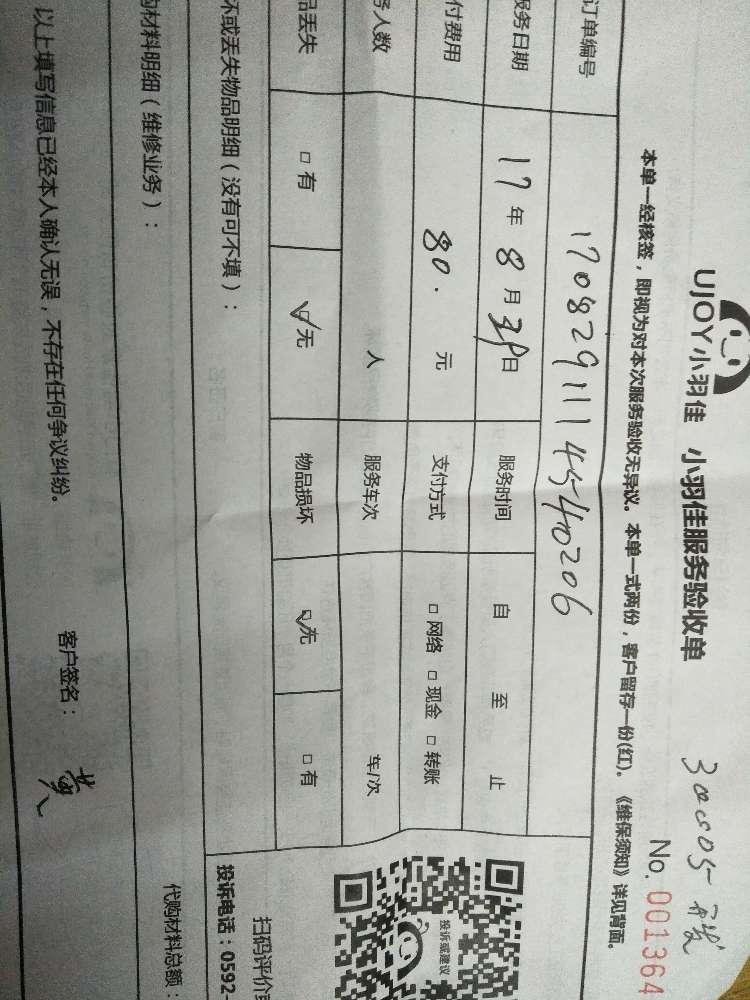 UJOY小羽佳 小羽佳服务验收单
No. 001364
本单一经核签，即视为对本次服务验收无异议。本单一式两份，客户留存一份(红)。《维保须知》详见背面。
订单编号 1708291114540206
服务日期 17年8月31日 服务时间 自 至 止
付费用 80. 元 支付方式 □网络 □现金 □转账
务人数 人 服务车次 车/次
品丢失 □有 □无 物品损坏 □无 □有
坏或丢失物品明细（没有可不填）：
购材料明细（维修业务）：
代购材料总额：
以上填写信息已经本人确认无误，不存在任何争议纠纷。 客户签名：
投诉或建议
扫码评价或
投诉电话：0592-